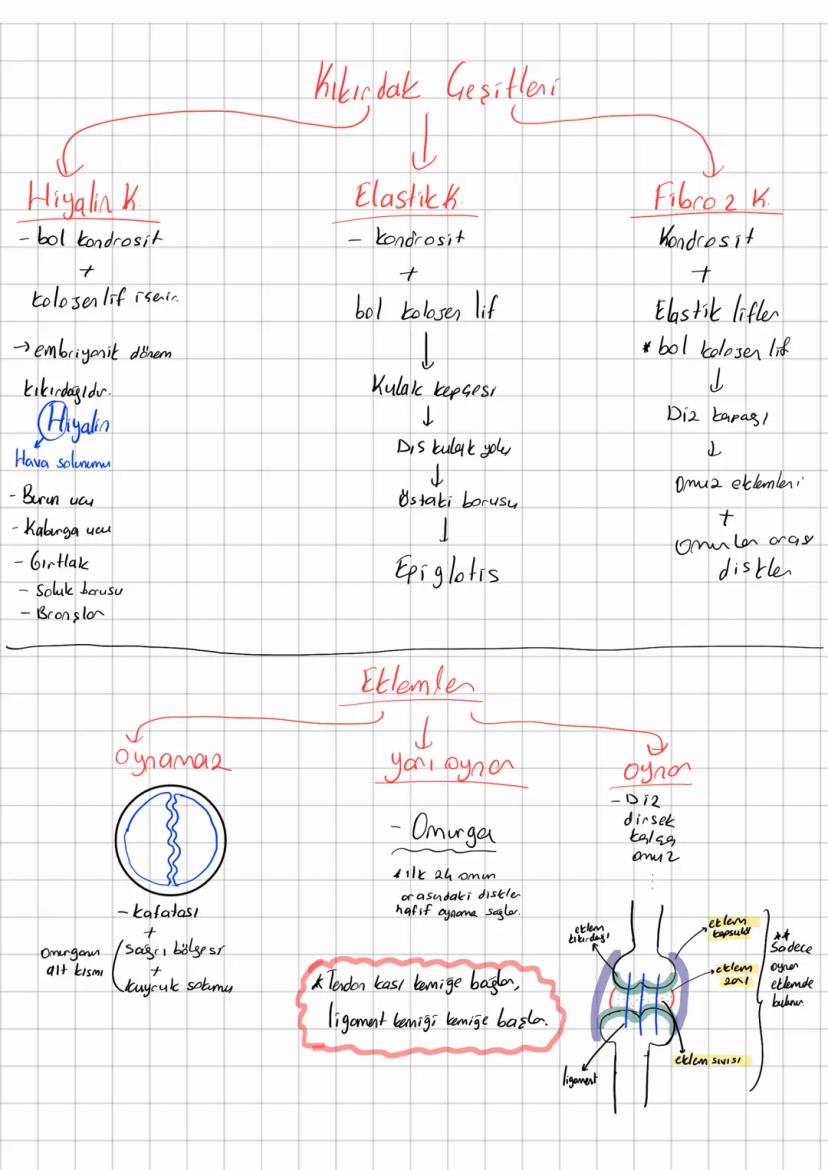 Kıkırdak Çeşitleri
Hiyalin K.
- bol kondrosit
+
kolojen lif içerir.
→ embriyonik dönem
kıkırdağıdır.
Hiyalin
Hava solunumu
- Burun ucu
- Kaburga ucu
- Gırtlak
- Soluk borusu
- Bronşlar
Elastik K.
- kondrosit
+
bol kolojen lif
Kulak kepçesi
Dış kulak yolu
Östaki borusu
Epiglotis
Fibroz K.
Kondrosit
+
Elastik lifler
* bol kolojen lif
Diz kapağı
Omuz eklemleri
+
Omurlar arası
diskler
Eklemler
Oynamaz
- Kafatası
+
Sağrı bölgesi
+
kuyruk sokumu
Omurganın
alt kısmı
Yarı oynar
- Omurga
* ilk 24 omur
arasındaki diskler
hafif oynama sağlar.
* Tendon kası kemiğe bağlar,
ligament kemiği kemiğe bağlar.
Oynar
- Diz
dirsek
kalça
omuz
eklem
kıkırdağı
eklem
kapsülü
eklem
zarı
eklem sıvısı
ligament
**
Sadece
oynar
eklemde
bulunur.